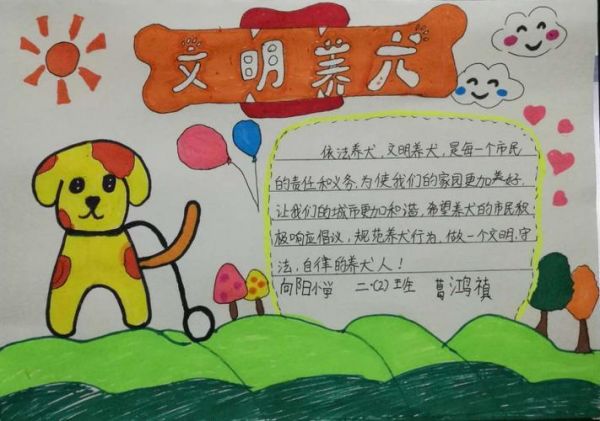 文明养犬
依法养犬,文明养犬,是每一个市民
的责任和义务,为使我们的家园更加美好,
让我们的城市更加和谐,希望养犬的市民积
极响应倡议,规范养犬行为,做一个文明,守
法,自律的养犬人!
向阳小学 二(2)班 曹鸿禛